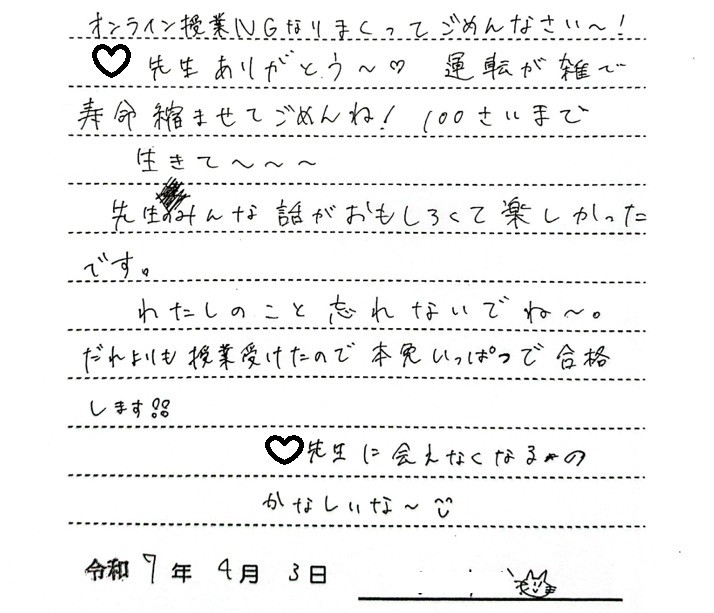 オンライン授業NGなりまくってごめんなさい～！
♡先生ありがとう～♡ 運転が雑で
寿命縮ませてごめんね！ 100さいまで
生きて～～～
先生みんな話がおもしろくて楽しかった
です。
わたしのこと忘れないでね～。
だれよりも授業受けたので本免いっぱつで合格
します!!
♡先生に会えなくなるの
かなしいな～
令和7年4月3日